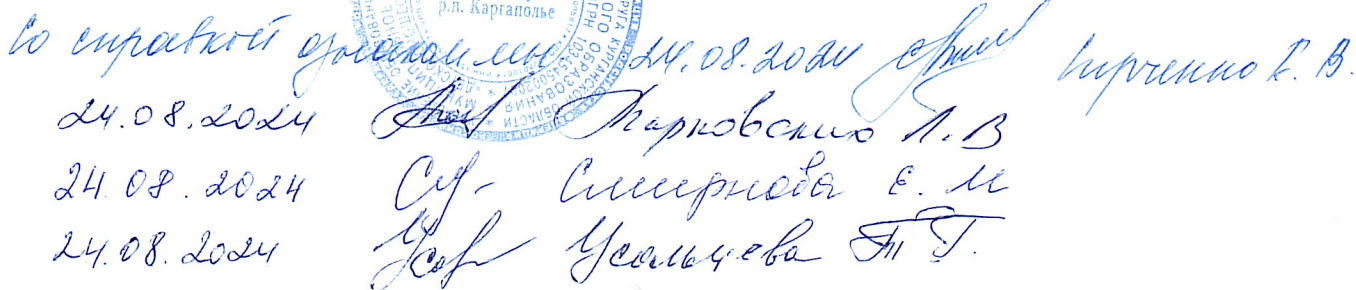 р.п. Каргаполье
Со справкой ознакомлены 24.08.2024
24.08.2024 Тарковских Л.В
24.08.2024 Смирнова Е.М
24.08.2024 Усольцева Т.Г.